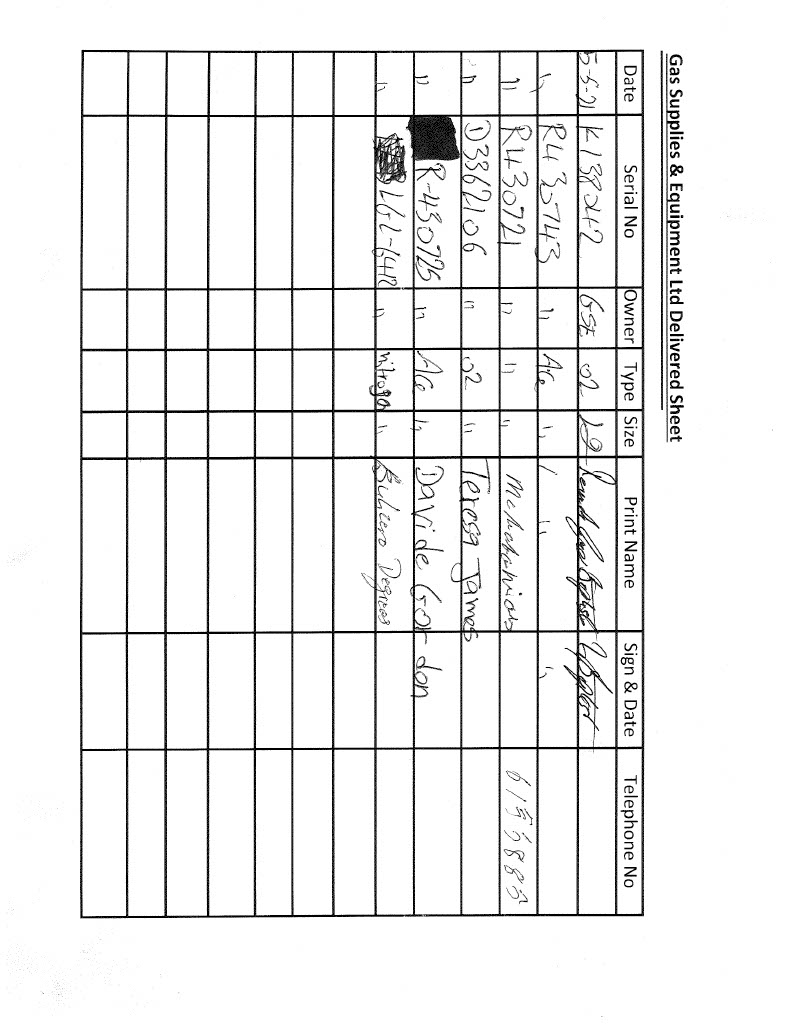 Gas Supplies & Equipment Ltd Delivered Sheet
Date Serial No Owner Type Size Print Name Sign & Date Telephone No
5-5-21 K138242 GSE O2 L2 Baptiste Baptist
" R430743 " Ace " " "
" R430721 " " " 6155885
" D3362106 " O2 " Teresa James
" R-430725 " Ace " Davide Gordon
" LGL-6412 " nitrogen " Degrees